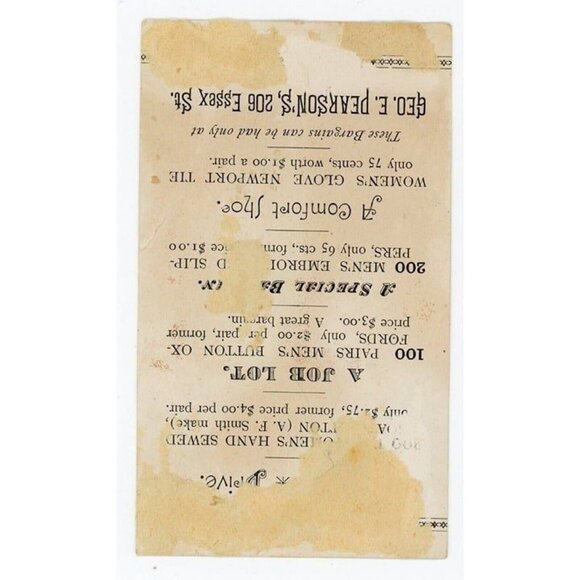 Drive.
WOMEN'S HAND SEWED
TTON (A. F. Smith make),
only $2.75, former price $4.00 per pair.
A JOB LOT.
100 PAIRS MEN'S BUTTON OX-
FORDS, only $2.00 per pair, former
price $3.00. A great bargain.
A SPECIAL BA N.
200 MEN'S EMBROI D SLIP-
PERS, only 65 cts., form ice $1.00
A Comfort Shoe.
WOMEN'S GLOVE NEWPORT TIE
only 75 cents, worth $1.00 a pair.
These Bargains can be had only at
GEO. E. PEARSON'S, 206 Essex St.